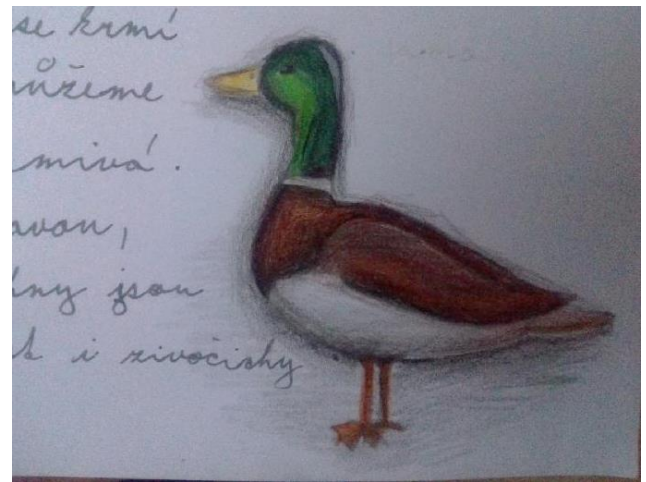 se krmí
ůžeme
mivá.
avou,
iny jsou
k i zivočichy